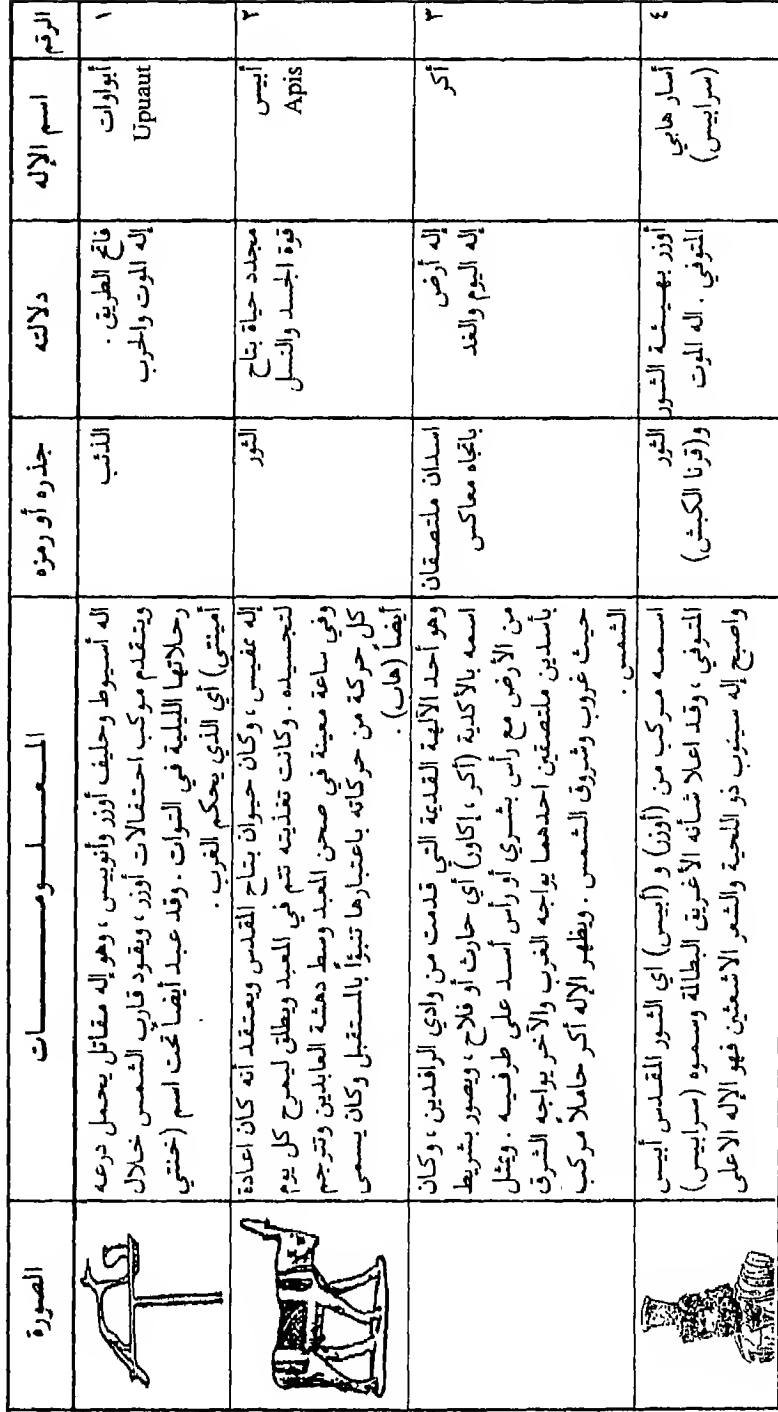 الرقم
اسم الإله
دلالته
جذره أو رمزه
المعلومات
الصورة
١
أبواوات
Upuaut
فاتح الطريق .
إله الموت والحرب
الذئب
اله أسيوط وحليف أوزر وأنوبيس ، وهو إله مقاتل يحمل درعه
ويتقدم موكب احتفالات أوزر ، ويقود قارب الشمس خلال
رحلاتها الليلية في التوات . وقد عبد أيضاً تحت اسم (خنتي
أمينتي) أي الذي يحكم الغرب .
٢
أبيس
Apis
مجدد حياة بتاح
قوة الجسد والنسل
الثور
إله ممفيس ، وكان حيوان بتاح المقدس ويعتقد أنه كان اعادة
لتجسيده . وكانت تغذيته تتم في المعبد ويطلق ليمرح كل يوم
وفي ساعة معينة في صحن المعبد وسط دهشة العابدين وتترجم
كل حركة من حركاته باعتبارها تنبؤاً بالمستقبل وكان يسمى
أيضاً (هاب) .
٣
أكر
إله أرض
إله اليوم والغد
اسدان ملتصقان
باتجاه معاكس
وهو أحد الآلهة القديمة التي قدمت من وادي الرافدين ، وكان
اسمه بالأكدية (أكر ، إكاور) أي حارث أو فلاح ، ويصور بشريط
من الأرض مع رأس بشري أو رأس أسد على طرفيه . ويمثل
بأسدين ملتصقين احدهما يواجه الغرب والآخر يواجه الشرق
حيث غروب وشروق الشمس . ويظهر الإله أكر حاملاً مركب
الشمس .
٤
أسار هابي
(سرابيس)
أوزر بهيئة الثور
المتوفي . اله الموت
الثور
و(قرنا الكبش)
اسمه مركب من (أوزر) و (أبيس) اي الثور المقدس أبيس
المتوفي ، وقد اعلا شأنه الأغريق البطالة وسموه (سرابيس)
واصبح إله سينوب ذو اللحية والشعر الاشعثين فهو الإله الاعلى